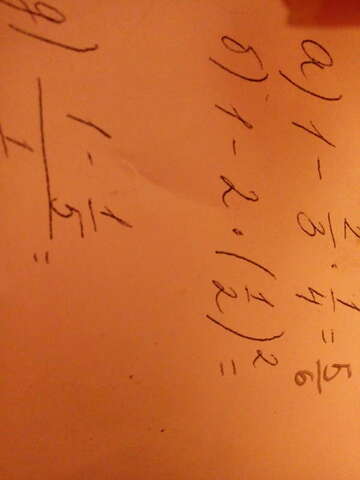 а) 1 - 2/3 · 1/4 = 5/6
б) 1 - 2 · (1/2)² =
1 - 1/5
1 =